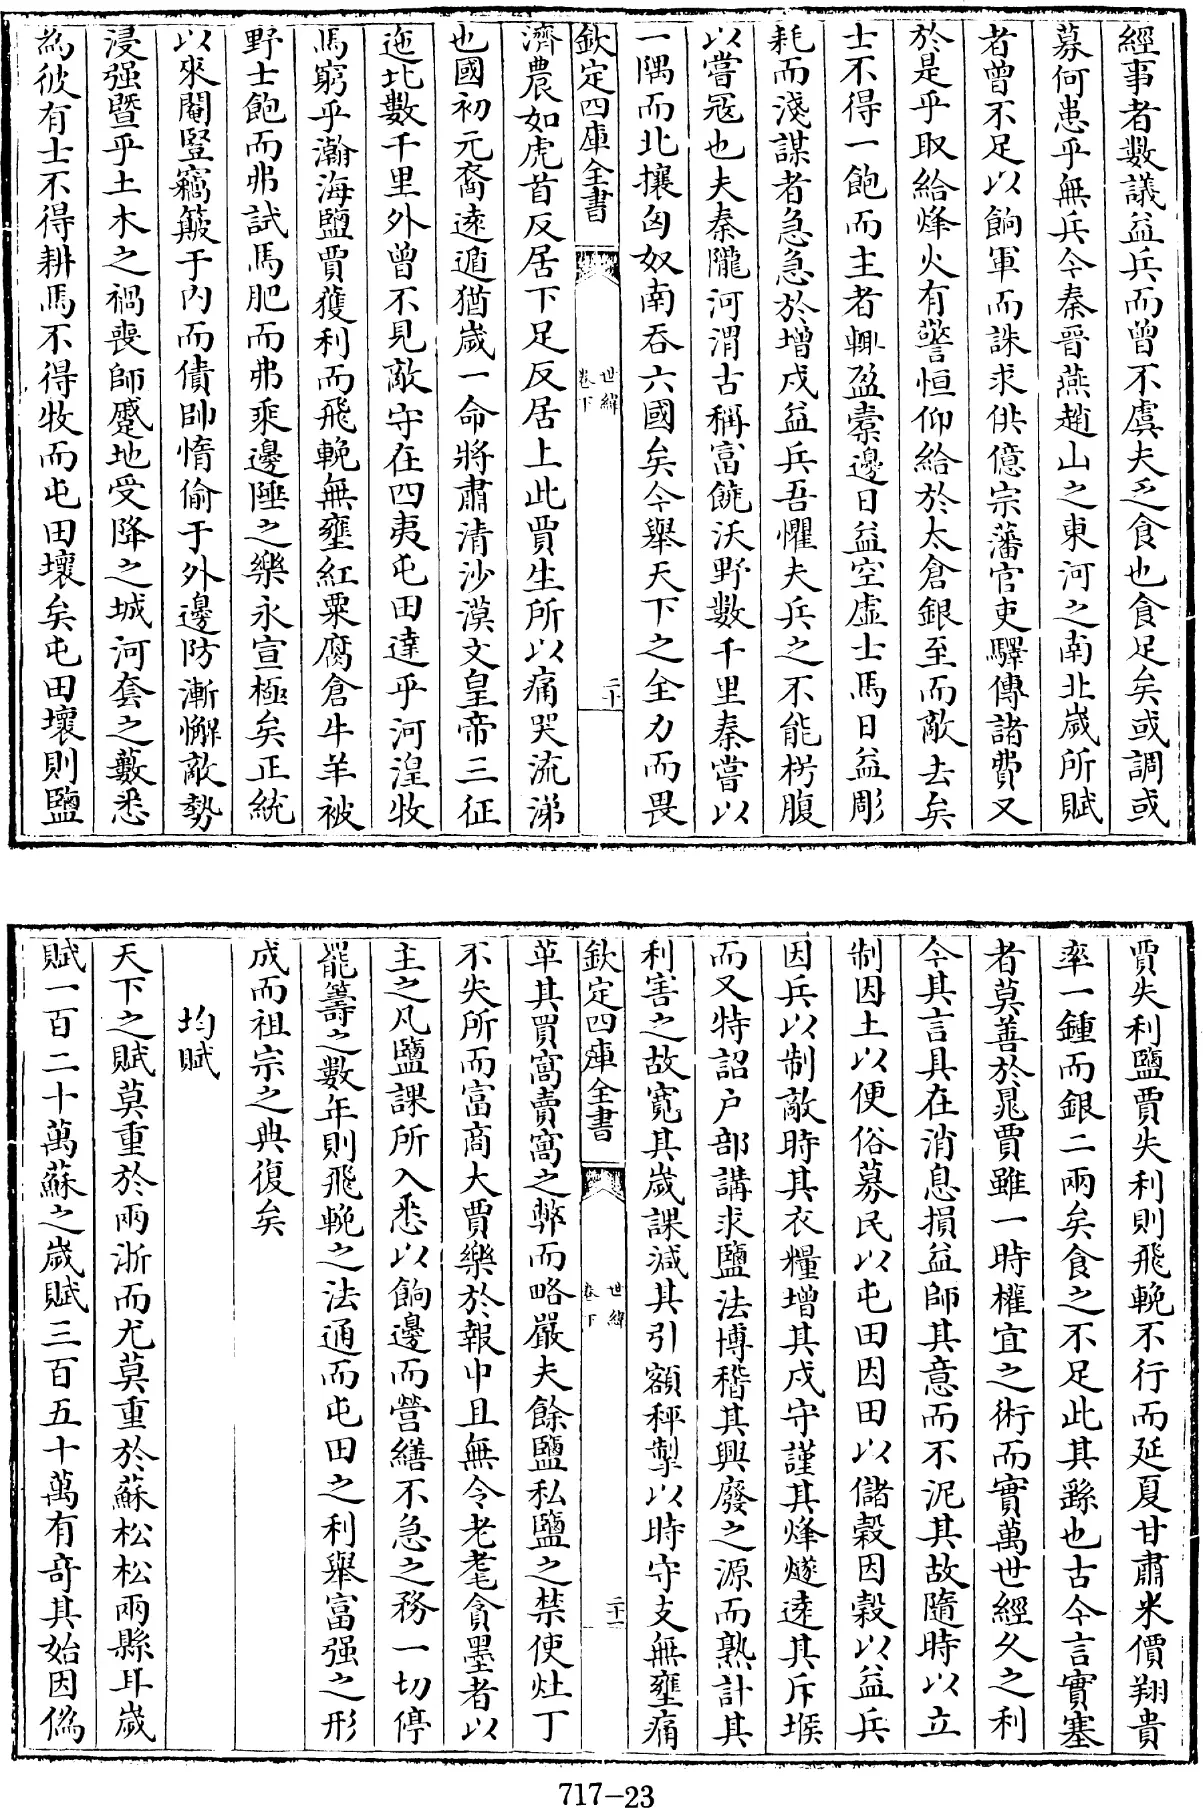 經事者數議益兵而曾不虞夫乏食也食足矣或調或
募何患乎無兵今秦晉燕趙山之東河之南北歲所賦
者曾不足以餉軍而誅求供億宗藩官吏驛傳諸費又
於是乎取給烽火有警恒仰給於太倉銀至而敵去矣
士不得一飽而主者輒盈橐邊日益空虛士馬日益彫
耗而淺謀者急急於增戍益兵吾懼夫兵之不能枵腹
以嘗冦也夫秦隴河渭古稱富饒沃野數千里秦嘗以
一隅而北攘匈奴南吞六國矣今舉天下之全力而畏
欽定四庫全書
世緯
卷下
二十
濟農如虎首反居下足反居上此賈生所以痛哭流涕
也國初元裔遠遁猶歲一命將肅清沙漠文皇帝三征
迤北數千里外曾不見敵守在四夷屯田達乎河湟牧
馬窮乎瀚海鹽賈獲利而飛輓無壅紅粟腐倉牛羊被
野士飽而弗試馬肥而弗乘邊陲之樂永宣極矣正統
以來閹豎竊簸于內而債帥惰偷于外邊防漸懈敵勢
浸强暨乎土木之禍喪師蹙地受降之城河套之藪悉
為彼有士不得耕馬不得牧而屯田壞矣屯田壞則鹽
賈失利鹽賈失利則飛輓不行而延夏甘肅米價翔貴
率一鍾而銀二兩矣食之不足此其繇也古今言實塞
者莫善於鼂賈雖一時權宜之術而實萬世經久之利
今其言具在消息損益師其意而不泥其故隨時以立
制因土以便俗募民以屯田因田以儲穀因穀以益兵
因兵以制敵時其衣糧增其戍守謹其烽燧遠其斥堠
而又特詔户部講求鹽法博稽其興廢之源而熟計其
利害之故寛其歲課減其引額秤掣以時守支無壅痛
欽定四庫全書
世緯
卷下
二十一
革其買窩賣窩之弊而略嚴夫餘鹽私鹽之禁使灶丁
不失所而富商大賈樂於報中且無令老耄貪墨者以
主之凡鹽課所入悉以餉邊而營繕不急之務一切停
罷籌之數年則飛輓之法通而屯田之利舉富强之形
成而祖宗之典復矣
均賦
天下之賦莫重於兩浙而尤莫重於蘇松松兩縣耳歲
賦一百二十萬蘇之歲賦三百五十萬有奇其始因僞
717-23